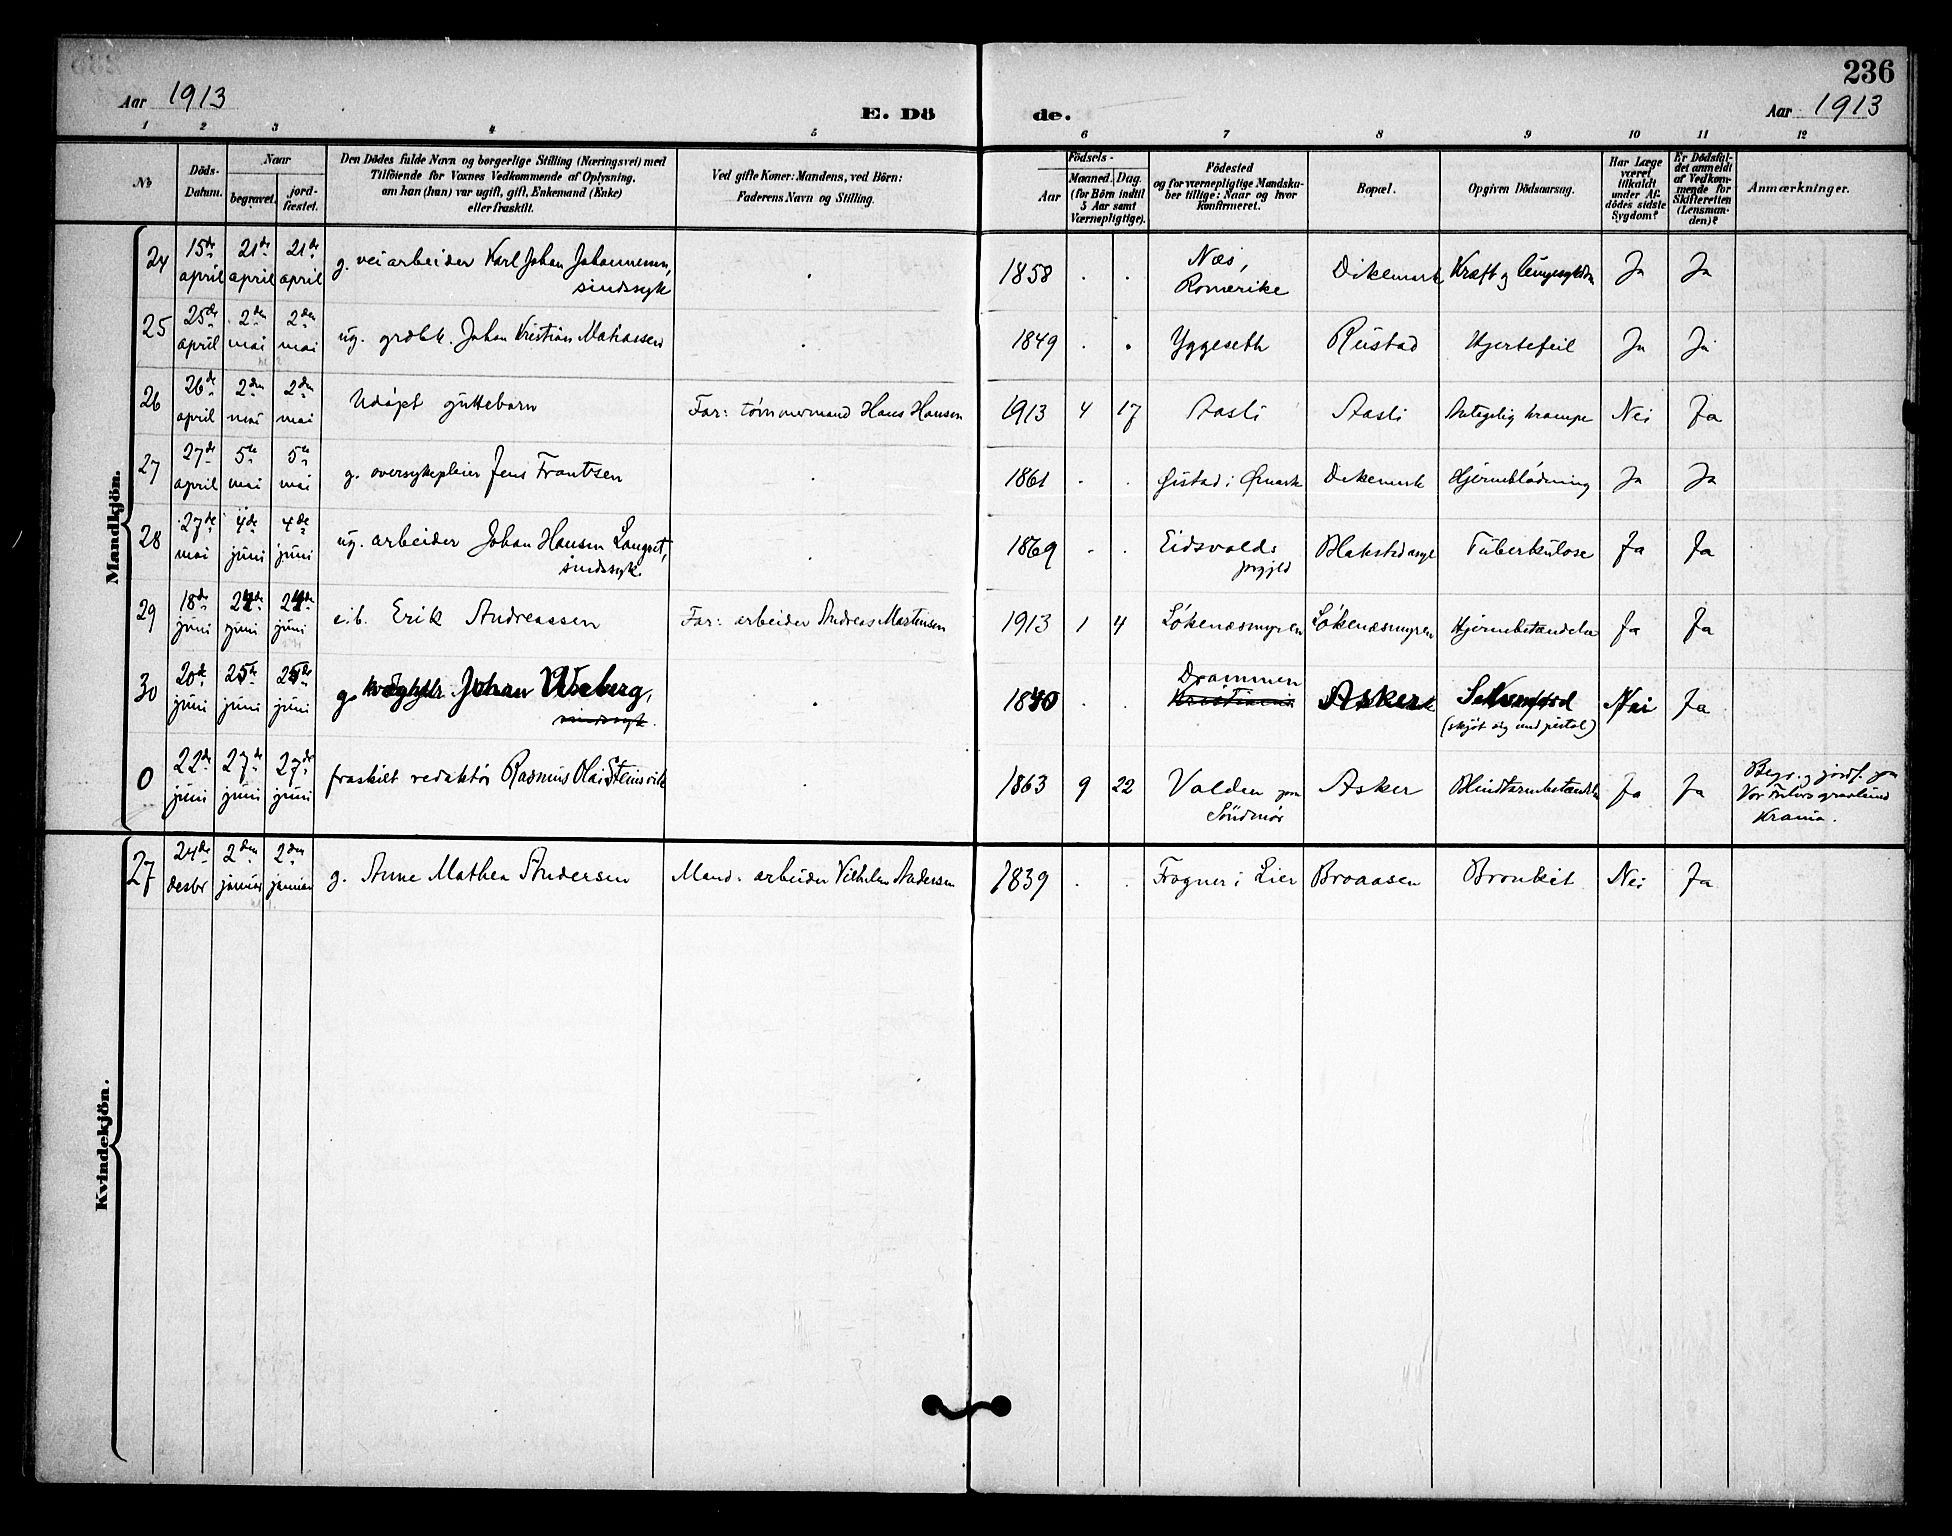 236
Aar 1913
E. Dö
de.
Aar 1913
1 2 3 4 5 6 7 8 9 10 11 12
No
Döds-
Datum.
Naar
begravet.
jord-
fæstet.
Den Dödes fulde Navn og borgerlige Stilling (Næringsvei) med
Tilföiende for Voxnes Vedkommende af Oplysning,
om han (hun) var ugift, gift, Enkemand (Enke)
eller fraskilt.
Ved gifte Koner: Mandens, ved Börn:
Faderens Navn og Stilling.
Födsels-
Aar
Maaned.
Dag.
(for Börn indtil
5 Aar samt
Værnepligtige).
Födested
og for værnepligtige Mandska-
ber tillige: Naar og hvor
konfirmeret.
Bopæl.
Opgiven Dödsaarsag.
Har Læge
været
tilkaldt
under Af-
dödes sidste
Sygdom?
Er Dödsfal-
det anmeldt
af Vedkom-
mende for
Skifteretten
(Lensman-
den)?
Anmærkninger.
Mandkjön.
24 15de april 21de april 21de april g. veiarbeider Karl Johan Johannesen, sindssyk 1858 Næs, Romerike Dikemark Kræft og lungesykdom Ja Ja
25 25de april 2den mai 2den mai ug. Johan Kristian 1849 Yggeseth Rustad Hjertefeil Ja Ja
26 26de april 2den mai 2den mai Udöpt guttebarn Far: tömmermand Hans Hansen 1913 4 17 Aasli Aasli Antagelig krampe Nei Ja
27 27de april 5te mai 5te mai g. oversykepleier Jens Frantzen 1861 i Dikemark Hjerneblödning Ja Ja
28 27de mai 4de juni 4de juni ug. arbeider Johan Hansen Langset, sindssyk. 1869 Eidsvolds prgjld Blakstad asyl Tuberkulose Ja Ja
29 18de juni 24de juni 24de juni e.b. Erik Andreassen Far: arbeider Andreas Martinsen 1913 1 4 Lökenæsmyren Lökenæsmyren Hjernebetændelse Ja Ja
30 20de juni 25de juni 25de juni g. Johan Wiberg, sindssyk. 1840 Drammen Kristiania Asker Selvmord (skjöt sig med pistol) Nei Ja
0 22de juni 27de juni 27de juni fraskilt redaktör Rasmus Olai Steinsvik 1863 9 22 Volden paa Söndmör Asker Blindtarmbetændelse Ja Ja Begr. og jordf. paa Vor Frelsers gravlund Krania.
Kvindekjön.
27 24de desbr 2den januar 2den januar g. Anne Mathea Andersen Mand: arbeider Vilhelm Andersen 1839 Frogner i Lier Braaasen Bronkit Nei Ja